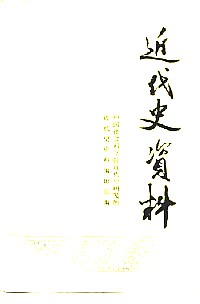 近代史资料
中国社会科学院近代史研究所
近代史资料编辑组编